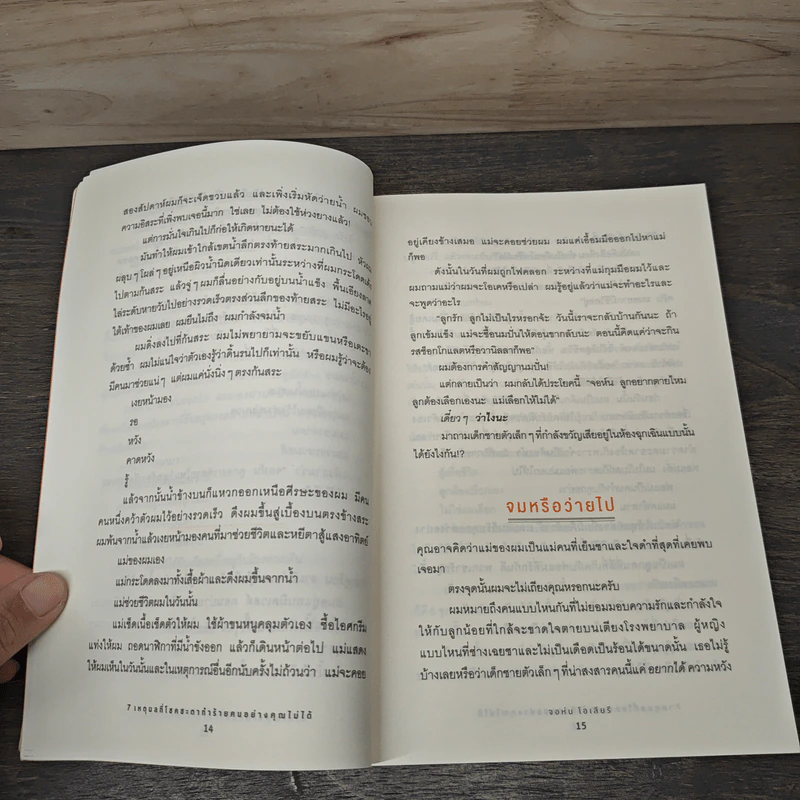 สองสัปดาห์ผมก็จะเจ็ดขวบแล้ว และเพิ่งเริ่มหัดว่ายน้ำ ผมชอบ
ความอิสระที่เพิ่งพบเจอนี้มาก ใช่เลย ไม่ต้องใช้ห่วงยางแล้ว!
แต่การมั่นใจเกินไปก็ก่อให้เกิดหายนะได้
มันทำให้ผมเข้าใกล้เขตน้ำลึกตรงท้ายสระมากเกินไป หัวผม
ผลุบๆ โผล่ๆ อยู่เหนือผิวน้ำนิดเดียวเท่านั้นระหว่างที่ผมกระโดดเด้ง
ไปตามก้นสระ แล้วจู่ๆ ผมก็ลื่นอย่างกับอยู่บนน้ำแข็ง พื้นเอียงลาด
ไล่ระดับหายวับไปอย่างรวดเร็วตรงส่วนลึกของท้ายสระ ไม่มีอะไรอยู่
ใต้เท้าของผมเลย ผมยืนไม่ถึง ผมกำลังจมน้ำ
ผมดิ่งลงไปที่ก้นสระ ผมไม่พยายามจะขยับแขนหรือเตะขา
ด้วยซ้ำ ผมไม่แน่ใจว่าตัวเองรู้ว่าดิ้นรนไปก็เท่านั้น หรือผมรู้ว่าจะต้อง
มีคนมาช่วยแน่ๆ แต่ผมแค่นั่งนิ่งๆ ตรงก้นสระ
เงยหน้ามอง
รอ
หวัง
คาดหวัง
รู้
แล้วจากนั้นน้ำข้างบนก็แหวกออกเหนือศีรษะของผม มีคน
คนหนึ่งคว้าตัวผมไว้อย่างรวดเร็ว ดึงผมขึ้นสู่เบื้องบนตรงข้างสระ
ผมพ้นจากน้ำแล้วเงยหน้ามองคนที่มาช่วยชีวิตและหยีตาสู้แสงอาทิตย์
แม่ของผมเอง
แม่กระโดดลงมาทั้งเสื้อผ้าและดึงผมขึ้นจากน้ำ
แม่ช่วยชีวิตผมในวันนั้น
แม่เช็ดเนื้อเช็ดตัวให้ผม ใช้ผ้าขนหนูคลุมตัวเอง ซื้อไอศกรีม
แท่งให้ผม ถอดนาฬิกาที่มีน้ำขังออก แล้วก็เดินหน้าต่อไป แม่แสดง
ให้ผมเห็นในวันนั้นและในเหตุการณ์อื่นอีกนับครั้งไม่ถ้วนว่า แม่จะคอย
7 เหตุผลที่โชคชะตาทำร้ายคนอย่างคุณไม่ได้
14
อยู่เคียงข้างเสมอ แม่จะคอยช่วยผม ผมแค่เอื้อมมือออกไปหาแม่
ก็พอ
ดังนั้นในวันที่ผมถูกไฟคลอก ระหว่างที่แม่กุมมือผมไว้และ
ผมถามแม่ว่าผมจะโอเคหรือเปล่า ผมรู้อยู่แล้วว่าแม่จะทำอะไรและ
จะพูดว่าอะไร
"ลูกรัก ลูกไม่เป็นไรหรอกจ้ะ วันนี้เราจะกลับบ้านกันนะ ถ้า
ลูกเข้มแข็ง แม่จะซื้อนมปั่นให้ตอนขากลับนะ ตอนนี้คิดแค่ว่าจะกิน
รสช็อกโกแลตหรือวานิลลาก็พอ"
ผมต้องการคำสัญญานมปั่น!
แต่กลายเป็นว่า ผมกลับได้ประโยคนี้ "จอห์น ลูกอยากตายไหม
ลูกต้องเลือกเองนะ แม่เลือกให้ไม่ได้"
เดี๋ยวๆ ว่าไงนะ
มาถามเด็กชายตัวเล็กๆ ที่กำลังขวัญเสียอยู่ในห้องฉุกเฉินแบบนั้น
ได้ยังไงกัน!?
จมหรือว่ายไป
คุณอาจคิดว่าแม่ของผมเป็นแม่คนที่เย็นชาและใจดำที่สุดที่เคยพบ
เจอมา
ตรงจุดนั้นผมจะไม่เถียงคุณหรอกนะครับ
ผมหมายถึงคนแบบไหนกันที่ไม่ยอมมอบความรักและกำลังใจ
ให้กับลูกน้อยที่ใกล้จะขาดใจตายบนเตียงโรงพยาบาล ผู้หญิง
แบบไหนที่ช่างเฉยชาและไม่เป็นเดือดเป็นร้อนได้ขนาดนั้น เธอไม่รู้
บ้างเลยหรือว่าเด็กชายตัวเล็กๆ ที่น่าสงสารคนนี้แค่ อยากได้ ความหวัง
จอห์น โอเลียรี
15